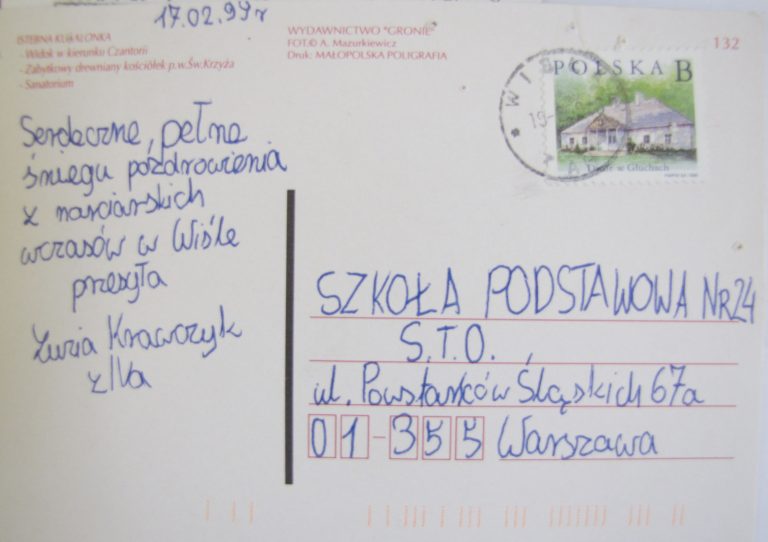 17.02.99r
ISTEBNA KUBALONKA
- Widok w kierunku Czantorii
- Zabytkowy drewniany kościółek p.w.Św.Krzyża
- Sanatorium
WYDAWNICTWO "GRONIE"
FOT.© A. Mazurkiewicz
Druk: MAŁOPOLSKA POLIGRAFIA
132
POLSKA B
Dwór w Głuchach
Serdeczne, pełne
śniegu pozdrowienia
z narciarskich
wczasów w Wiśle
przesyła
Zuzia Krawczyk
z IVa
SZKOŁA PODSTAWOWA NR24
S.T.O.
ul. Powstańców Śląskich 67a
01-355 Warszawa